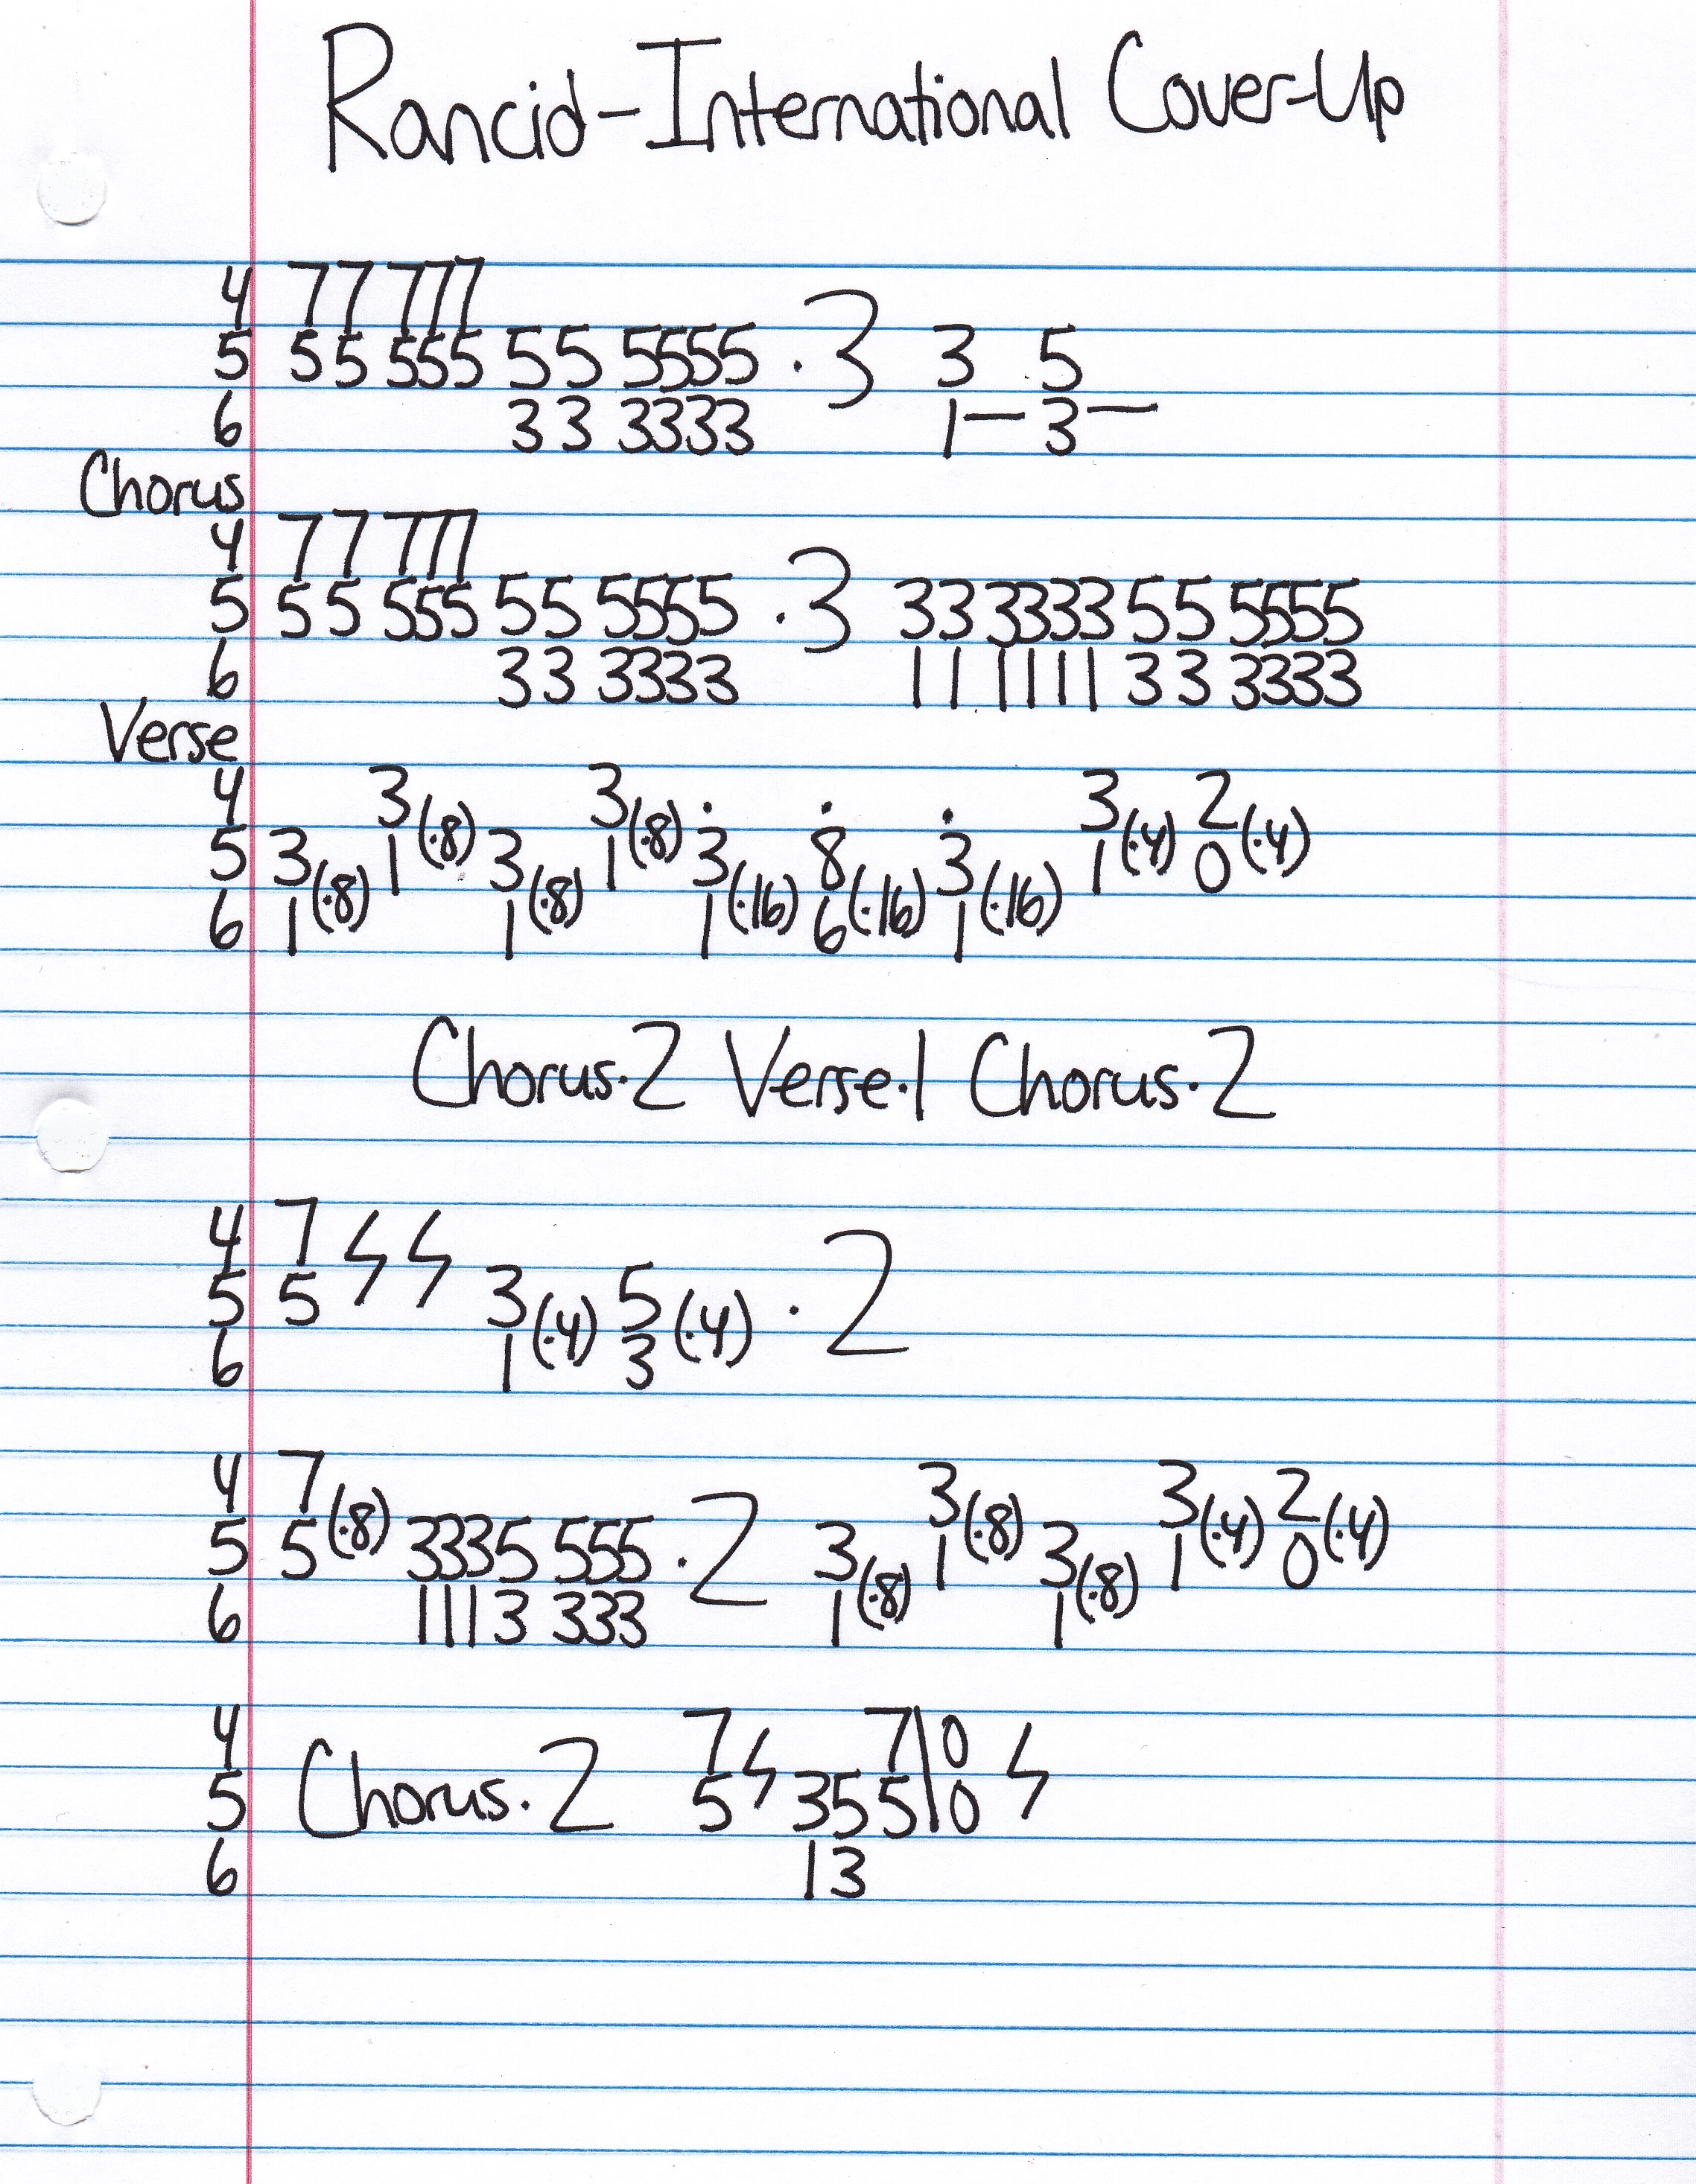 Rancid-International Cover-Up
4 77 777
5 55 555 55 5555 .3 3 5
6 33 3333 1— 3—
Chorus
4 77 777
5 55 555 55 5555 .3 33 3333 55 5555
6 33 3333 11 1111 33 3333
Verse
4 3(·8) 3(·8) . . . 3(·4) 2(·4)
5 3(·8) 1 3(·8) 1 3(·16) 8(·16) 3(·16) 1 0
6 1 1 1 6 1
Chorus·2 Verse·1 Chorus·2
4 7
5 5 3(·4) 5(·4) ·2
6 1 3
4 7(·8) 3(·8) 3(·4) 2(·4)
5 5 3335 555 ·2 3(·8) 1 3(·8) 1 0
6 1113 333 1 1
4 7 7|0
5 Chorus·2 5 35 5|0
6 13